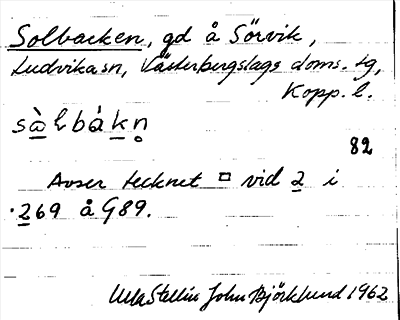 Solbacken, gd å Sörvik,
Ludvika sn, Västerbergslags doms. tg,
Kopp. l.
82
Avser tecknet □ vid 2 i
269 å G89.
Ulla Stellin John Björklund 1962